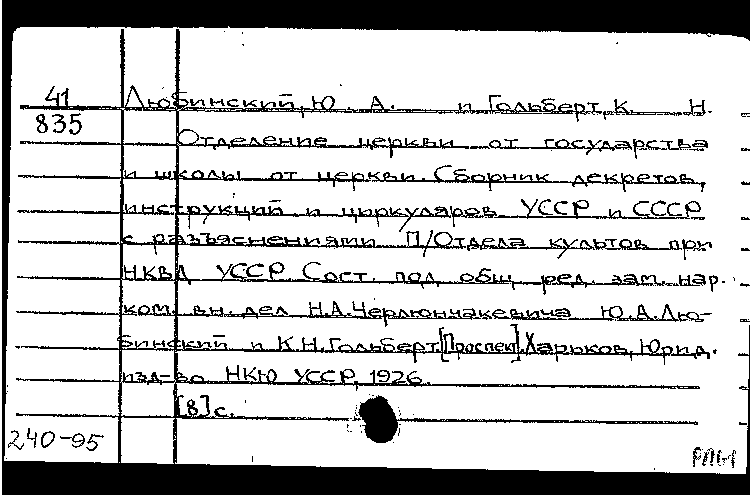 41 Любинский, Ю. А. и Гольберт, К. Н.
835
Отделение церкви от государства
и школы от церкви. Сборник декретов,
инструкций и циркуляров УССР и СССР
с разъяснениями П/Отдела культов при
НКВД УССР. Сост. под общ. ред. зам. нар.
ком. вн. дел Н.А.Черлюнчакевича Ю.А.Лю-
бинский и К.Н.Гольберт.[Проспект].Харьков, Юрид.
изд-во НКЮ УССР, 1926.
[8] с.
240-95